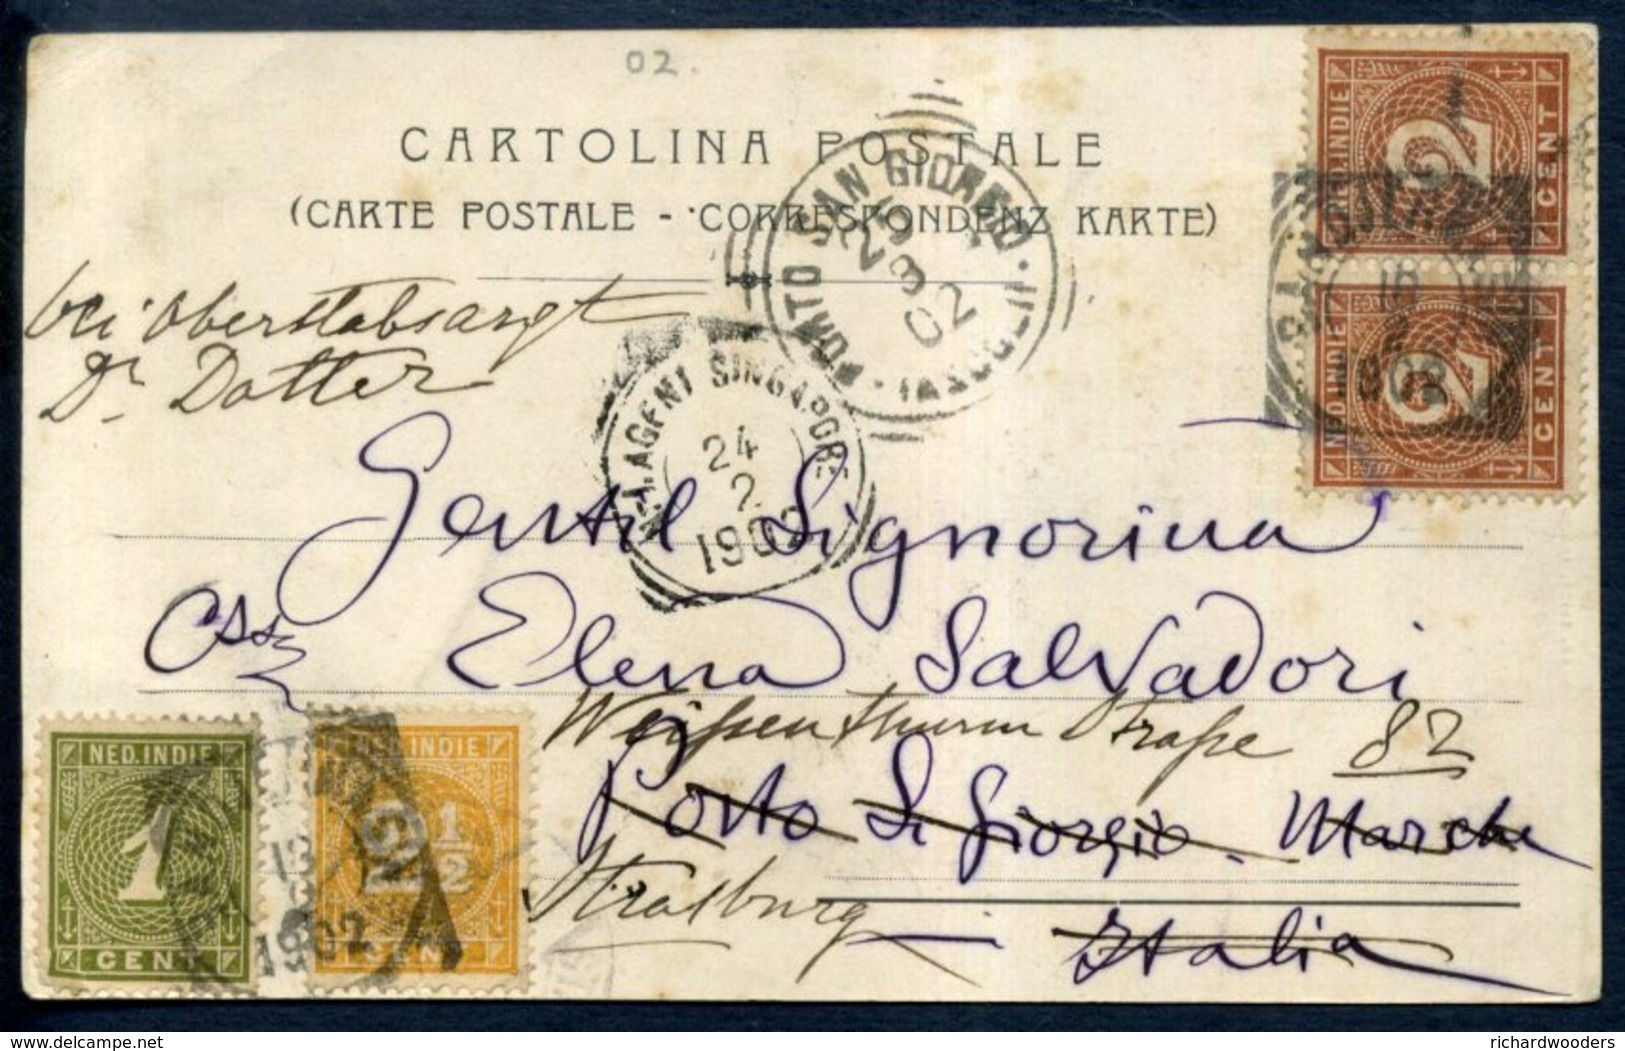 02.
CARTOLINA POSTALE
(CARTE POSTALE - CORRESPONDENZ KARTE)
PORTO SAN GIORGIO
23
3
02
NED.INDIE
2
CENT
NED.INDIE
2
CENT
bei Oberstabsarzt
Dr Dotter
N.I. AGENT SINGAPORE
24
2
1902
Gentil Signorina
Elena Salvadori
Weissenthurm Straße 82
Porto S. Giorgio. Marche
Straßburg
Italia
NED.INDIE
1
CENT
NED.INDIE
2 1/2
CENT
1902
delcampe.net
richardwooders